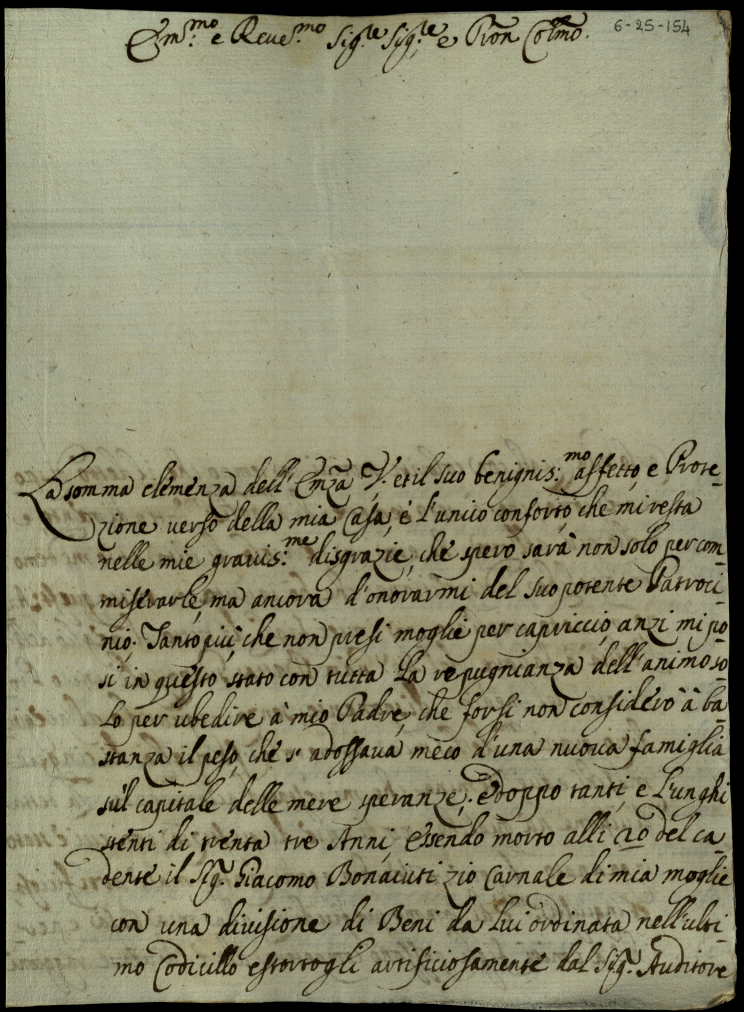 Em.mo e Reue.mo Sig.re Sig.re e Pron Colmo.
6-25-154
La somma clemenza dell' Emza V. et il suo benignis:mo affetto, e Prote-
zione verso della mia Casa, è l'unico conforto, che mi resta
nelle mie gravis:me disgrazie, che spero sarà non solo per com-
miserarle, ma ancora d'onorarmi del suo potente Patroci-
nio. Tanto più, che non presi moglie per capriccio, anzi mi po-
si in questo stato con tutta la repugnianza dell'animo so-
lo per ubedire à mio Padre, che forsi non considerò à ba-
stanza il peso, che s' adossava meco d'una nuova famiglia
sul capitale delle mere speranze; e doppo tanti, e lunghi
stenti di trenta tre Anni, essendo morto alli 20 del ca-
dente il Sig.r Giacomo Bonaiuti zio carnale di mia moglie
con una divisione di Beni da lui ordinata nell'ulti-
mo Codicillo estortogli artificiosamente dal Sig.r Auditore